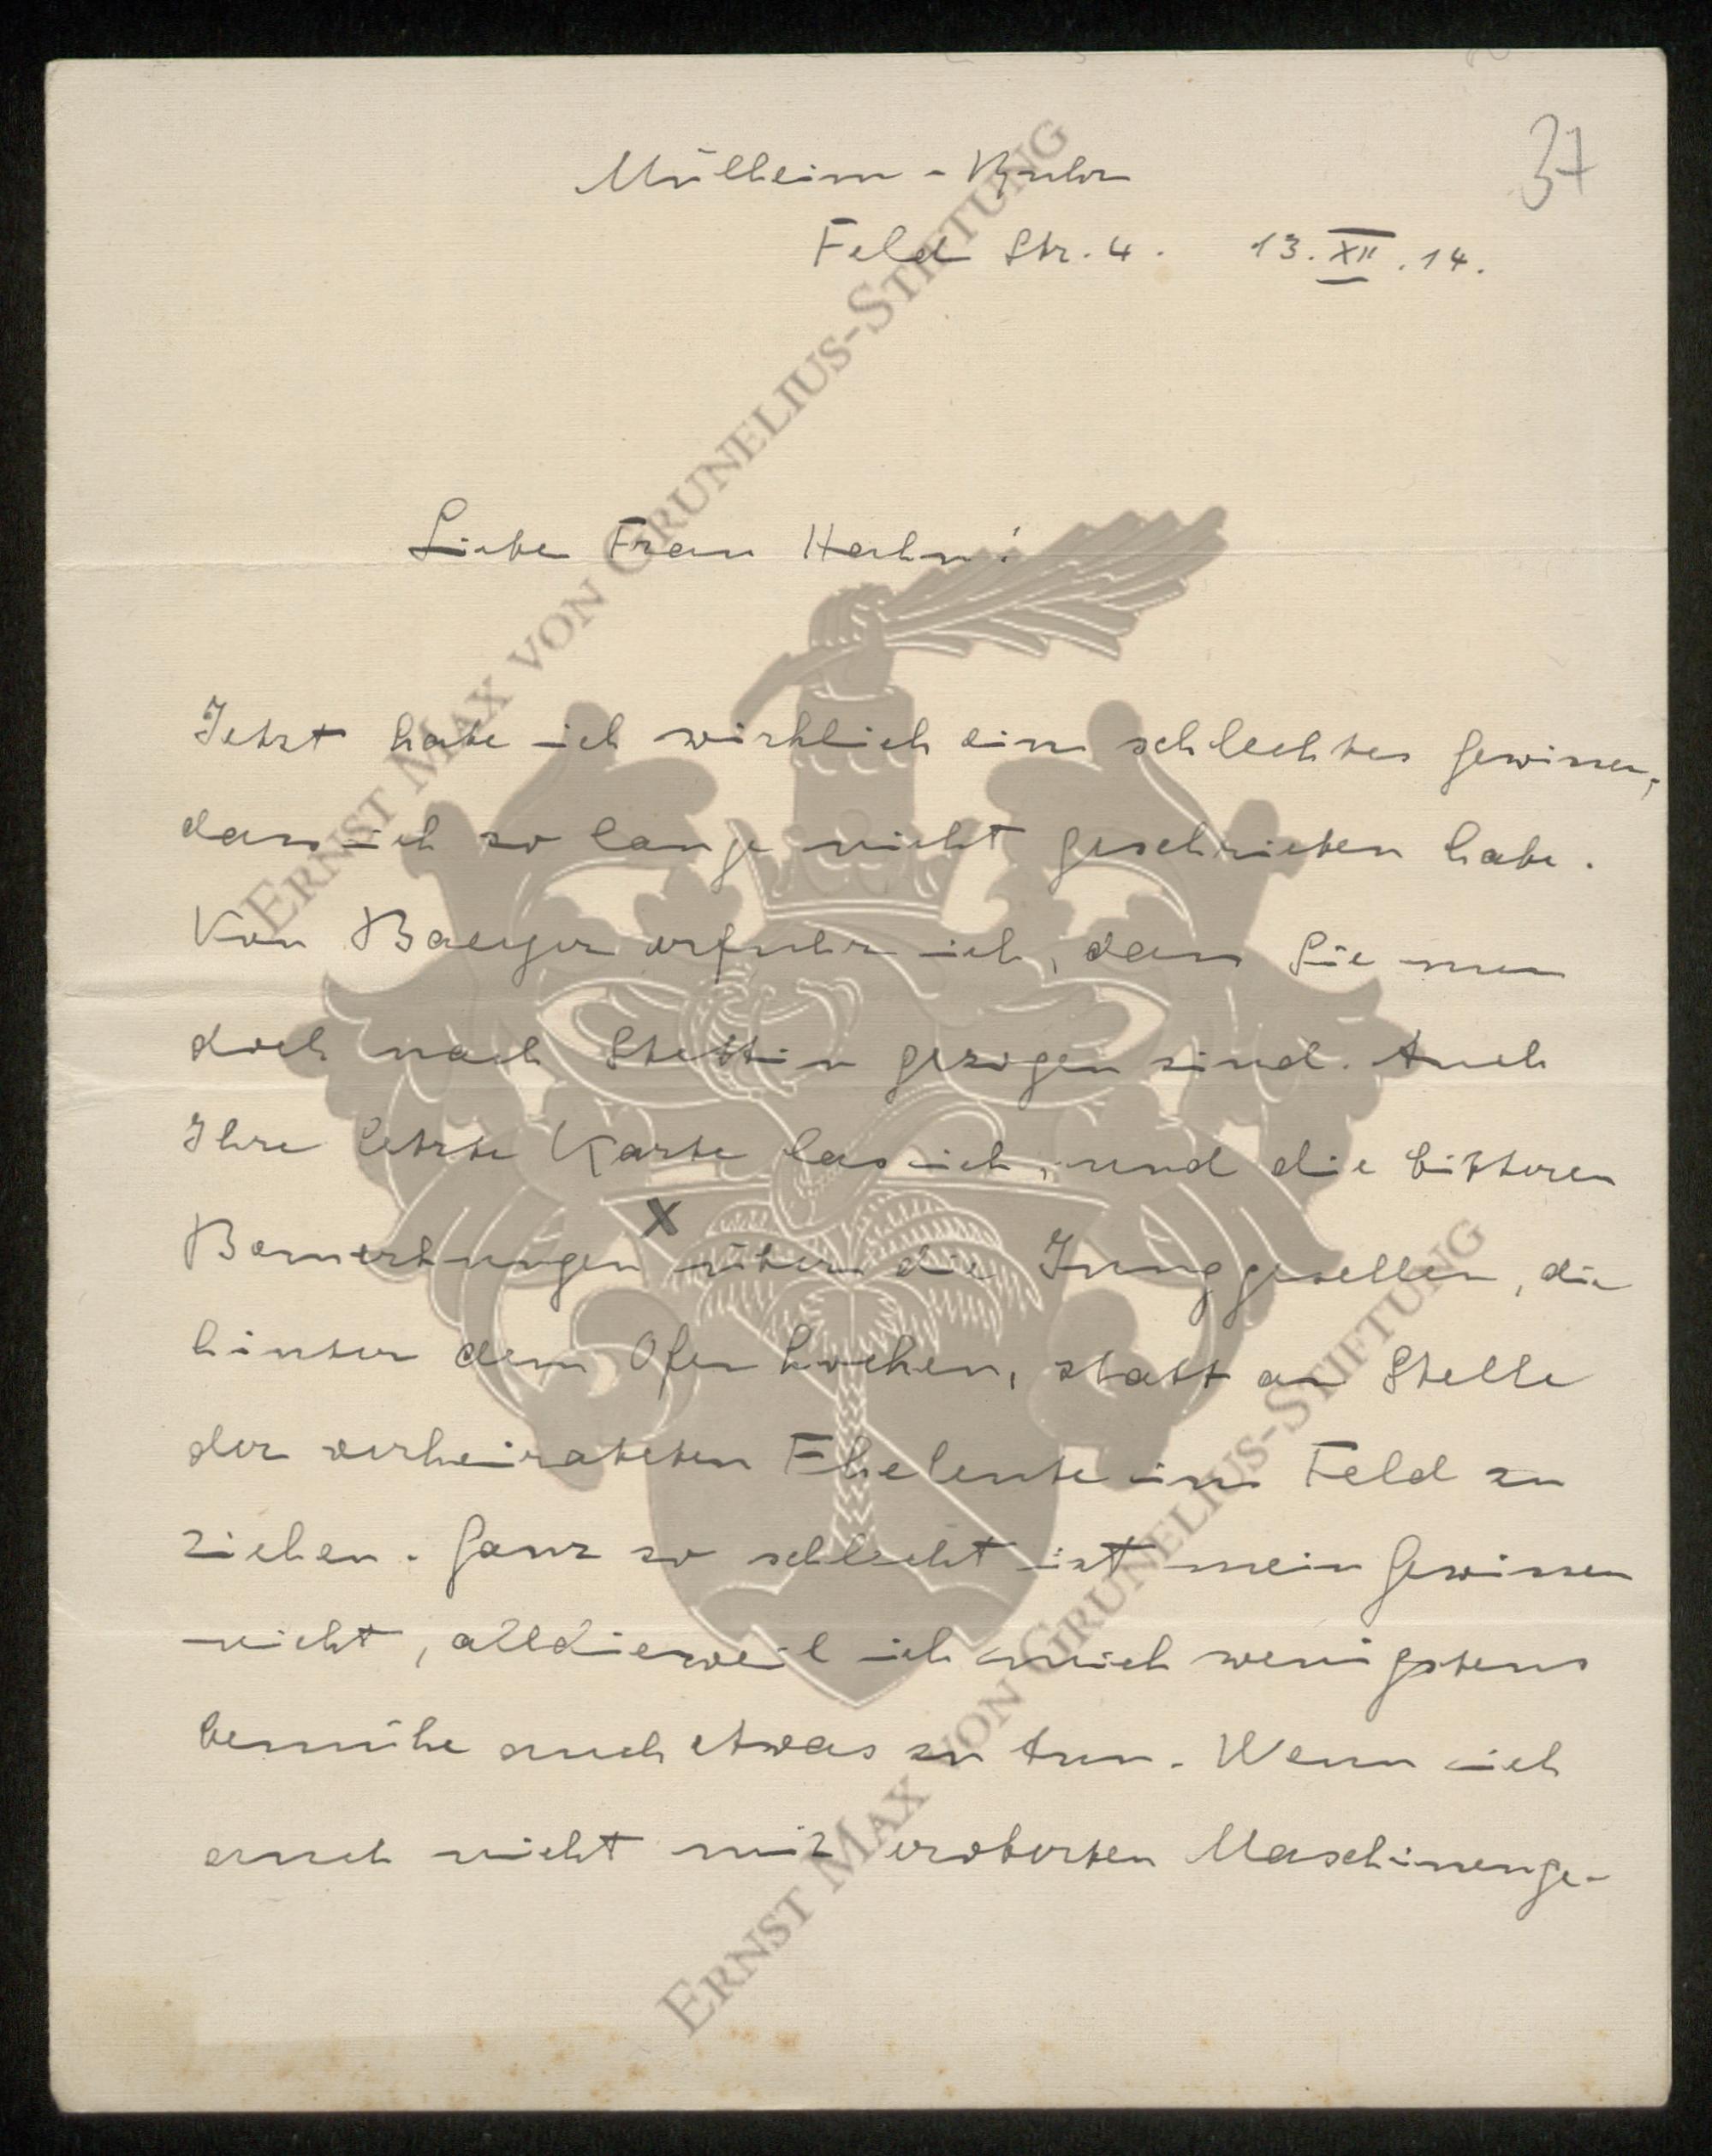 37
Mülheim-Ruhr
Feld Str. 4. 13. XII. 14.
Liebe Frau Hahn!
Jetzt habe ich wirklich ein schlechtes Gewissen,
dass ich so lange nicht geschrieben habe.
Von Baeyer erfuhr ich, dass Sie nun
doch nach Stettin gezogen sind. Auch
Ihre letzte Karte las ich, und die bitteren
X
Bemerkungen über die Junggesellen, die
hinter dem Ofen hocken, statt an Stelle
der verheirateten Eheleute ins Feld zu
ziehen. Ganz so schlecht ist mein Gewissen
nicht, alldieweil ich mich wenigstens
bemühe auch etwas zu tun. Wenn ich
auch nicht mit eroberten Maschinenge-
ERNST MAX VON GRUNELIUS-STIFTUNG
ERNST MAX VON GRUNELIUS-STIFTUNG